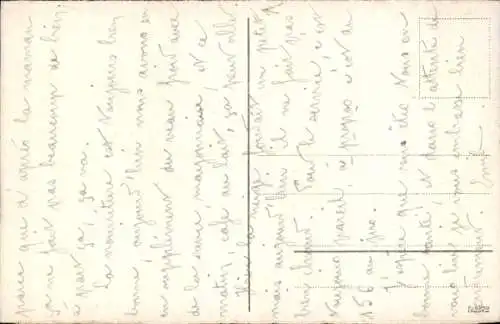 parce que d'après la maman
ça ne fait pas beaucoup de bien
à part ça, ça va.
La nourriture est toujours bien
bonne, aujourd'hui nous avons eu
en supplément du veau froid avec
de la sauce mayonnaise, et ce
matin, café au lait, ça peut aller.
Hier la neige fondait un petit
mais aujourd'hui il ne fait pas
bien chaud. Tour de service c'est
toujours pareil, à propos c'est de
156 au jus.
J'espère que vous êtes tous en
bonne santé, et dans l'attente de
vous lire je vous embrasse bien